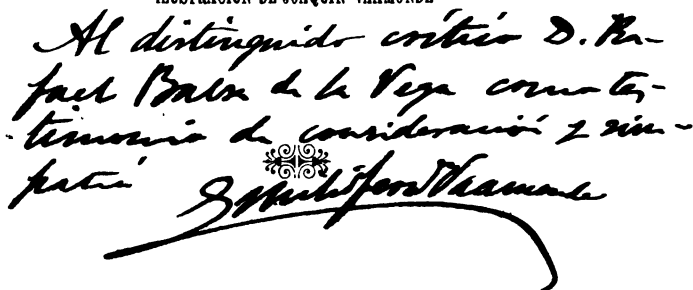 ILUSTRACIÓN DE JOAQUÍN VAAMONDE
Al distinguido crítico D. Ra-
fael Balsa de la Vega como tes-
timonio de consideración y sim-
patía
Emilio Vaamonde